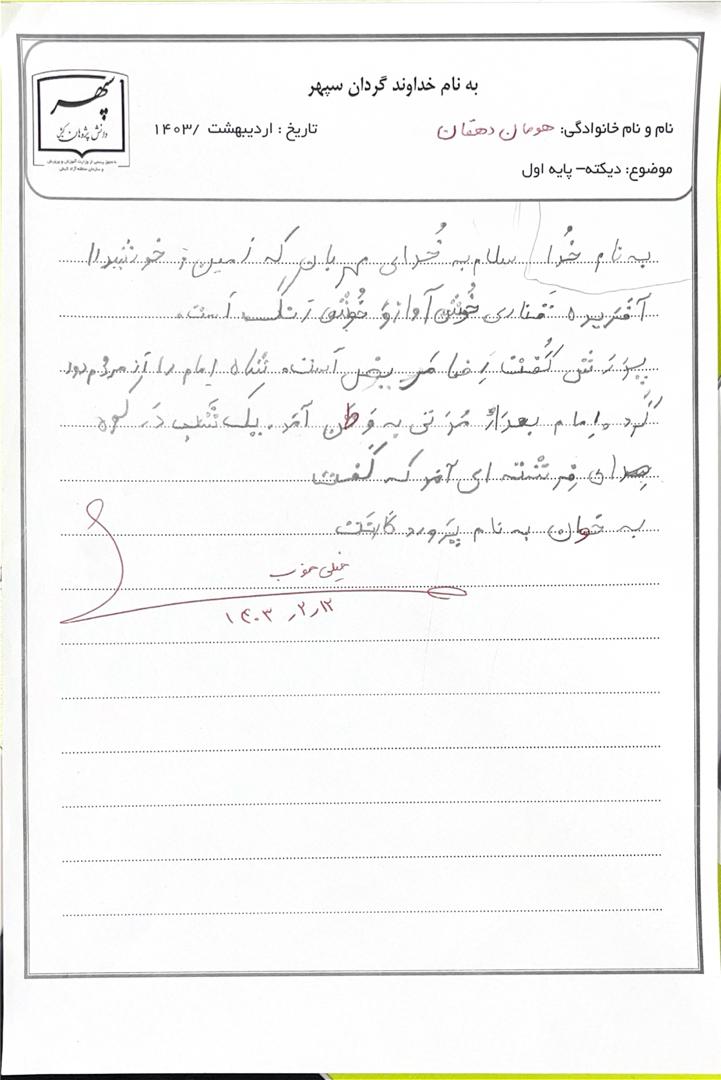 به نام خداوند گردان سپهر
سپهر
دانش پژوهان کیش
با مجوز رسمی از وزارت آموزش و پرورش
و سازمان منطقه آزاد کیش
نام و نام خانوادگی: هومان دهقان
تاریخ : اردیبهشت /۱۴۰۳
موضوع: دیکته– پایه اول
به نام خُدا سلام به خُدای مهربان که زمین و خورشید را
آفَریده قَناری خُوش آواز و خُوش رَنگ اَست.
پِدَرَش گُفت رِضا مَریض اَست. شاه امام را اَز مردُم دور
کَرد. اِمام بعد اَز مُدَتی به وَطن آمَد. یک شَب دَر کوه
صدای فِرِشته ای آمَد که گُفت
به خوان به نام پَروَردگارَت
خیلی خوب
۱۴۰۳٫۲٫۱۲